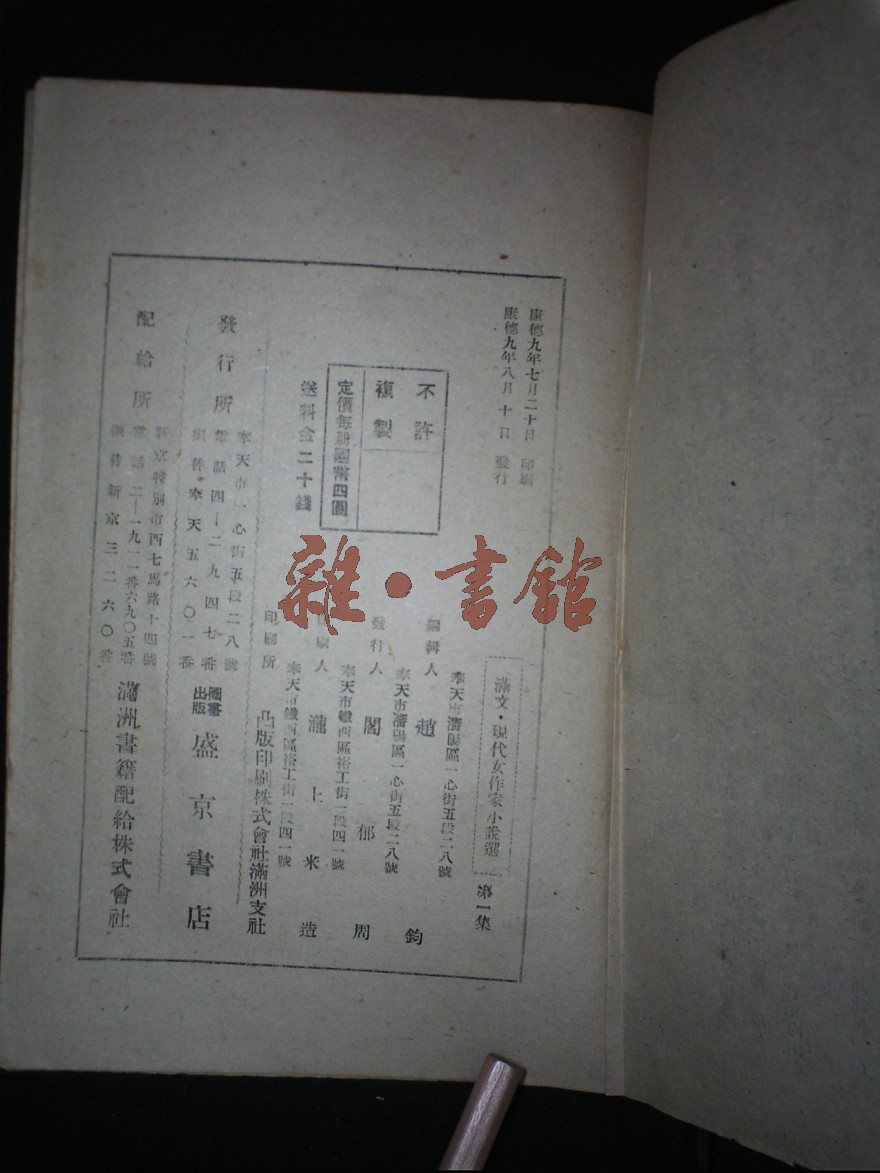 康德九年七月二十日 印刷
康德九年八月十日 發行
不許
複製
定價每册國幣四圓
送料金二十錢
滿文・現代女作家小說選 第一集
奉天市瀋陽區一心街五段二八號
編輯人 趙 鈞
奉天市瀋陽區一心街五段二八號
發行人 閣 郁 周
奉天市鐵西區裕工街一段四一號
印刷人 瀧上米造
奉天市鐵西區裕工街一段四一號
印刷所 凸版印刷株式會社滿洲支社
奉天市一心街五段二八號
發行所 電話四—二九四七番 圖書出版 盛京書店
振替奉天五六〇一番
新京特別市西七馬路十四號
配給所 電話二—一九二一番六九〇五番 滿洲書籍配給株式會社
振替新京三二六〇番
雜・書館